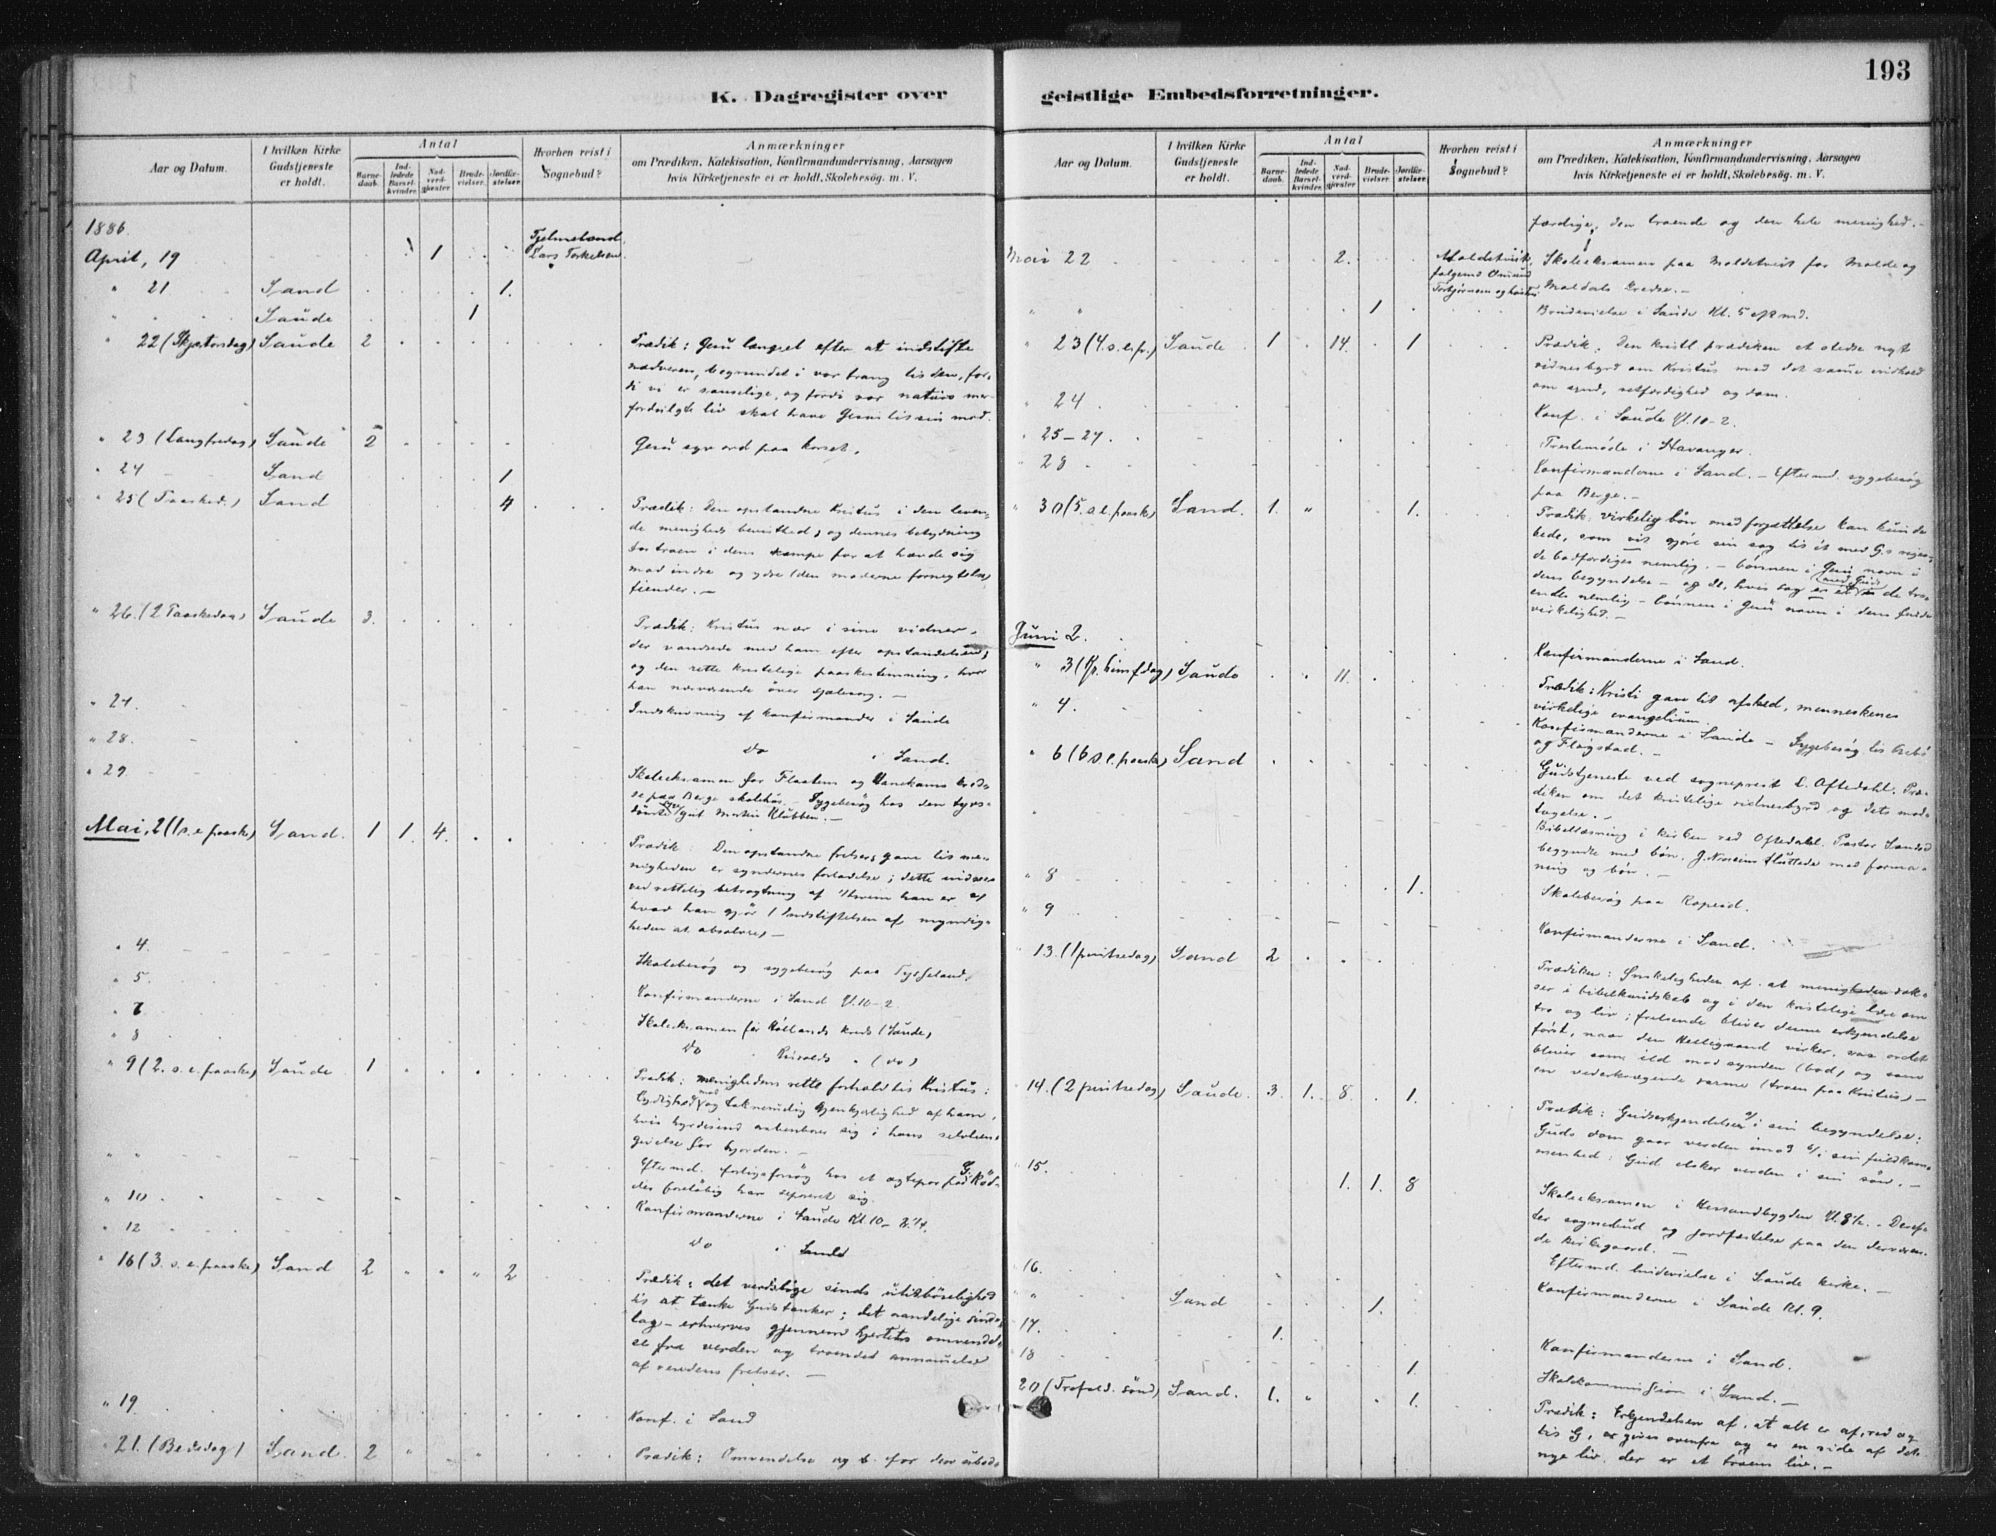 193
K. Dagregister over geistlige Embedsforretninger.
Aar og Datum.
I hvilken Kirke Gudstjeneste er holdt.
Antal
Barnedaab.
Indledede Barselkvinder.
Nadverdgjester
Brudevielser.
Jordfæstelser.
Hvorhen reist i Sognebud?
Anmærkninger
om Prædiken, Katekisation, Konfirmandundervisning, Aarsagen
hvis Kirketjeneste ei er holdt, Skolebesøg. m. V.
1886.
April, 19 1 Lars Torkelsen
" 21 Sand 1.
Saude 1
" 22 (Skjærtorsdag) Saude 2 Prædik: Jesu længsel efter at indstifte
nadveren, begrundet i vor trang til den, for-
di vi er sanselige, og fordi vor naturs
liv skal have
" 23 (Langfredag) Saude 2 Jesu syv ord paa korset.
" 24 Sand 1
" 25 (Paasked.) Sand 4 Prædik: Den opstandne Kristus i den leven-
de menigheds bevidsthed, og dennes betydning
for troen i dens kampe for at hævde sig
mod indre og ydre (den moderne fornegtelse)
fiender. –
" 26. (2 Paaskedag) Saude 3. Prædik: Kristus nær i sine vidner,
der vandrede med ham efter opstandelsen,
og den rette kristelige paaskestemning, hvor
han nærværende
" 27. Indskrivning af konfirmander i Saude
" 28. do i Sand.
" 29. Skoleeksamen for Flaatens og
paa Berge skolehus. – Sygebesøg hos den
gut Martin Klubben. –
Mai, 2 (1 s. e. paaske) Sand. 1 1. 4. Prædik: Den opstandne frelsers gave til me-
nigheden er syndernes forladelse; dette
ved rettelig betragtning af hvem han er og
hvad han gjør (Indstiftelsen af myndig-
heden at absolvere) –
" 4. Skolebesøg og sygebesøg paa
" 5. Konfirmanderne i Sand Kl. 10–2
" 7. Skoleeksamen for Høllands kreds (Saude)
" 8 do (do)
" 9 (2. s. e. paaske) Saude 1 Prædik: menighedens rette forhold til Kristus:
lydighed mod og taknemlig gjenkjærlighed af ham,
hvis hyrdesind aabenbarer sig i hans selvhen-
givelse for hjorden. –
" " Eftermd. forligsforsøg hos et ægtepar paa
der foreløbig har separeret sig.
" 10 Konfirmanderne i Saude Kl. 10–
" 12 do i Sand
" 16 (3. s. e. paaske) Sand 2 2 Prædik: det verdslige sinds utilbøielighed
til at tænke Gudstanker; det aandelige sinds-
lag – erhverves gjennem hjertets omvendel-
se fra verden og troendes annamelse
af verdens frelser. –
" 19 Konf. i Sand
" 21. (Bededag) Sand 2 Prædik: Omvendelse og b. for den ubod-
færdige, den troende og den hele menighed. –
Mai 22 2. Skoleeksamen paa Moldetveit for Molde og
Moldals kredse. –
" " 1 Brudevielse i Saude Kl. 5 eftmd.
" 23 (4. s. e. p.) Saude 1 14. 1 Prædik. Den kristl prædiken et stedse nyt
vidnesbyrd om Kristus med det samme indhold
om synd, retfærdighed og dom.
" 24 Konf. i Saude Kl. 10–2.
" 25–27. Prestemøde i Stavanger.
" 28 Konfirmanderne i Sand. – Eftermd. sygebesøg
paa Berge. –
" 30 (5. s. e. paask.) Sand. 1. " 1. Prædik. virkelig bøn med forjættelse kan kun de
bede, som vil gjøre sin sag til ét med G.s
de bodfærdiges nemlig. – bønnen i Jesu navn i
dens begyndelse – og de, hvis sag er ét med Guds de tro-
ende nemlig – bønnen i Jesu navn i dens fulde
virkelighed. –
Juni 2. Konfirmanderne i Sand.
" 3 (Kr. himfdag) Saude 11. Prædik: Kristi gave til afsked, menneskenes
virkelige evangelium.
" 4. Konfirmanderne i Saude – Sygebesøg til
og Fløgstad. –
" 6 (6 s. e. paaske) Sand Gudstjeneste ved sogneprest L. Oftedahl. Præ-
diken om det kristelige vidnesbyrd og dets mod-
tagelse. –
Bibellæsning i kirken ved Oftedahl. Pastor
begyndte med bøn. sluttede med forma-
ning og bøn. –
" 8 1. Skolebesøg paa
" 9 Konfirmanderne i Sand.
" 13. (1 pintsedag) Sand 2 Prædiken: Ønskeligheden af at menigheden vok-
ser i bibelkundskab og i den kristelige lære om
tro og liv; frelsende bliver denne erkjendelse
først, naar den Helligaand virker, saa ordet
bliver som ild mod synden (bod) og som
en vederkvægende varme (troen paa Kristus) –
" 14. (2 pintsedag) Saude. 3. 1. 8. 1. Prædik: Gudserkjendelsen a/ i sin begyndelse:
Guds dom gaar verden imod b/ i sin fuldkom-
menhed: Gud elsker verden i sin søn. –
" 15. 1. 1. 8 Skoleeksamen i Hersandbygden Derefter
sognebud og jordfæstelse paa den derværen-
de kirkegaard. –
Eftermd. brudevielse i Saude kirke. –
" 16. Konfirmanderne i Saude Kl. 9.
" " Sand 1.
" 17. 1. Konfirmanderne i Sand.
" 18 1. Skolekommission i Sand. –
20 (Trefold. sønd) Sand. 1. " 1. Prædik: Erkjendelsen af, at alt er af, ved og
til G, er given ovenfra og er en side af det
nye liv, der er et troens liv. –